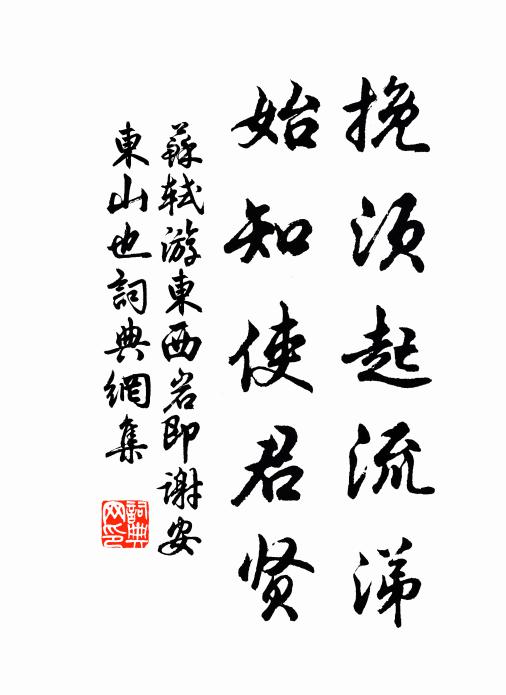 挽须起流涕
始知使君贤
蘇軾游東西岩即謝安
東山也詞典網集
詞典網印